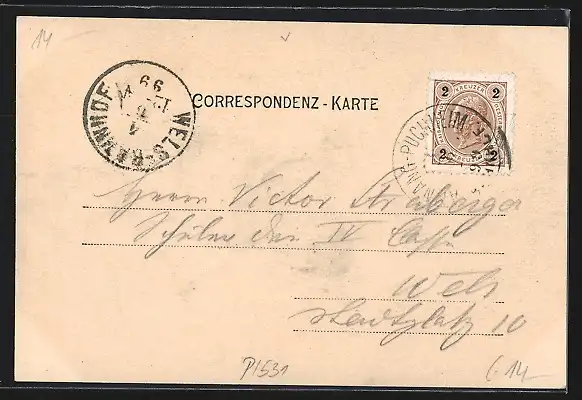 14
WELS-BAHNHOF
99
CORRESPONDENZ - KARTE
2 KREUZER 2
2 KREUZER 2
PUCHHEIM
Herrn Victor
Schüler der IV Classe
Wels
Stadtplatz 10
P1531
614